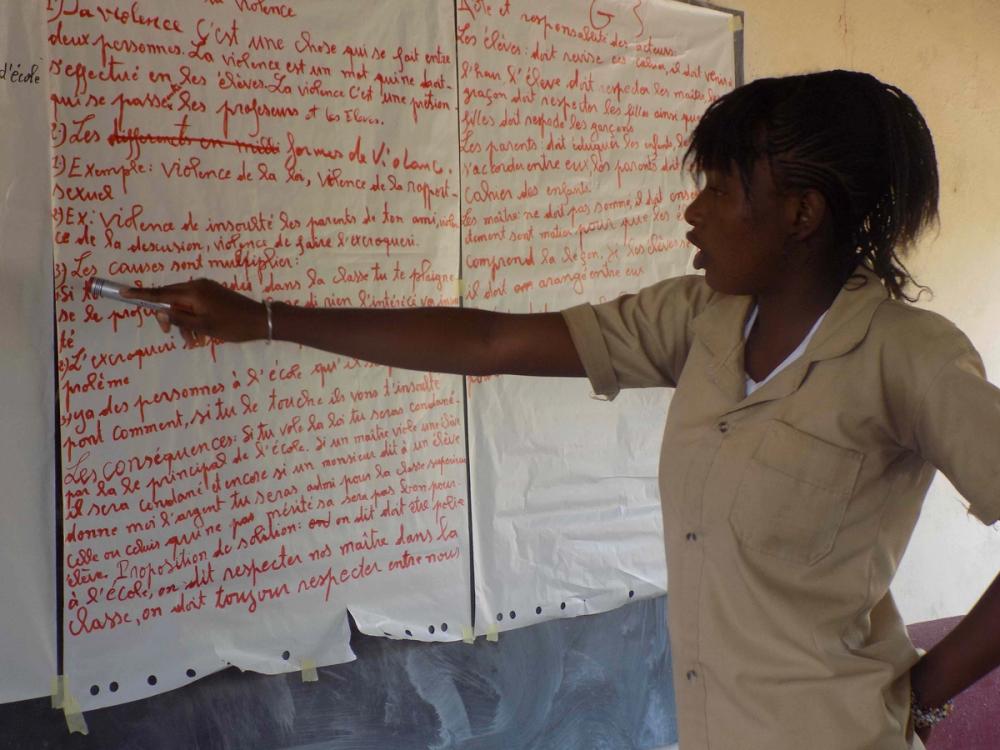 d'école
1) La violence
la violence
C'est une chose qui se fait entre
deux personnes. La violence est un mot qui ne doit
s'effectué en les élèves. La violence C'est une présion
qui se passe les profeseurs et les Eleves.
2) Les differents en milli formes de Violanc.
1) Exemple: Violence de la loi, vilence de la rapport
sexuel
2) Ex: Violence de insculté les parents de ton ami, violen
ce de la descusion, violence de faire l'excroqueri.
3) Les causes sont multiplier:
Si tu dans la classe tu te plaigne
se le profe di rien l'intéricé va
té
2) L'excroqueri
prolème
3) ya des personnes à l'école qu'il
pont comment, si tu le touche ils vons t'insulte
Les conséquences: Si tu vole la loi tu seras condané
par la le principal de l'école. Si un maître viole une élève
il sera condané et encore si un monsieur dit à un élève
donne moi l'argent tu seras admi pour la classe superieur
celle ou celuis qui ne pas mérité sa sera pas bon pour
élève. Proposition de solution: on on dit doit être polie
à l'école, on dit respecter nos maître dans la
classe, on doit toujour respecter entre nous
G3
Rôle et responsabilité des acteurs:
Les élèves: doit revise ces cahier, il doit venir à
l'heur l'élève doit respecter les maître, les
graçon doit respecter les filles ainsi que
filles doit respede les garçons
Les parents: doit éduquer les enfants,
s'acorder entre eux les parents doit
Cahier des enfants.
Les maître: ne doit pas somme, il doit
dement sont matier pour que les
comprend la leçon. Si les élèves
il doit on arangé entre eux